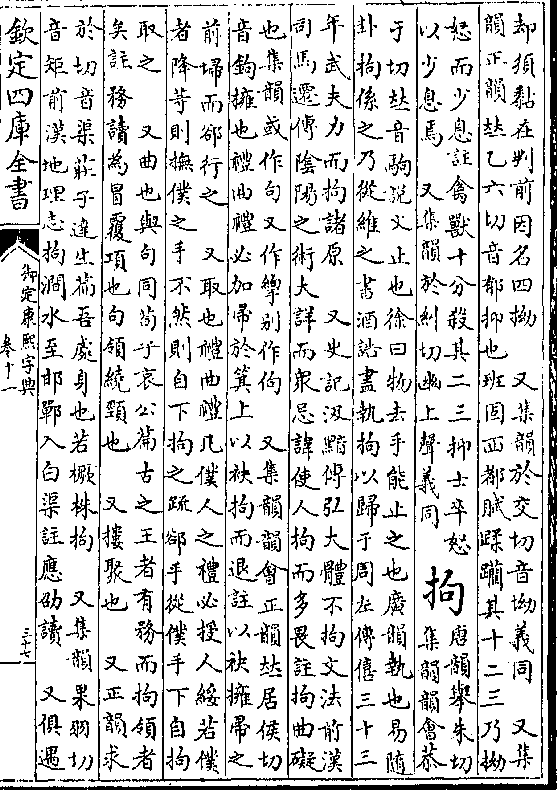 却須黏在判前因名四拗　又集韻於交切音坳義同　又集
韻正韻𠀤乙六切音郁抑也班固西都賦蹂躪其十二三乃拗
怒而少息註禽獸十分殺其二三抑士卒怒
以少息焉　又集韻於糾切幽上聲義同
拘
唐韻舉朱切
集韻韻會恭
于切𠀤音駒說文止也徐曰物去手能止之也廣韻執也易隨
卦拘係之乃從維之書酒誥盡執拘以歸于周左傳僖三十三
年武夫力而拘諸原　又史記汲黯傳弘大體不拘文法前漢
司馬遷傳陰陽之術大詳而衆忌諱使人拘而多畏註拘曲礙
也集韻或作句又作別作佝　又集韻韻會正韻𠀤居侯切
音鉤擁也禮曲禮必加帚於箕上以袂拘而退註以袂擁帚之
前埽而卻行之　又取也禮曲禮凡僕人之禮必授人綏若僕
者降等則撫僕之手不然則自下拘之疏卻手從僕手下自拘
取之　又曲也與句同荀子哀公篇古之王者有務而拘領者
矣註務讀為冒覆項也句領繞頸也　又摟聚也　又正韻求
於切音渠莊子達生篇吾處身也若橛株拘　又集韻果羽切
音矩前漢地理志拘澗水至邯鄲入白渠註應劭讀　又俱遇
欽定四庫全書
御定康熙字典
卷十一
三十七